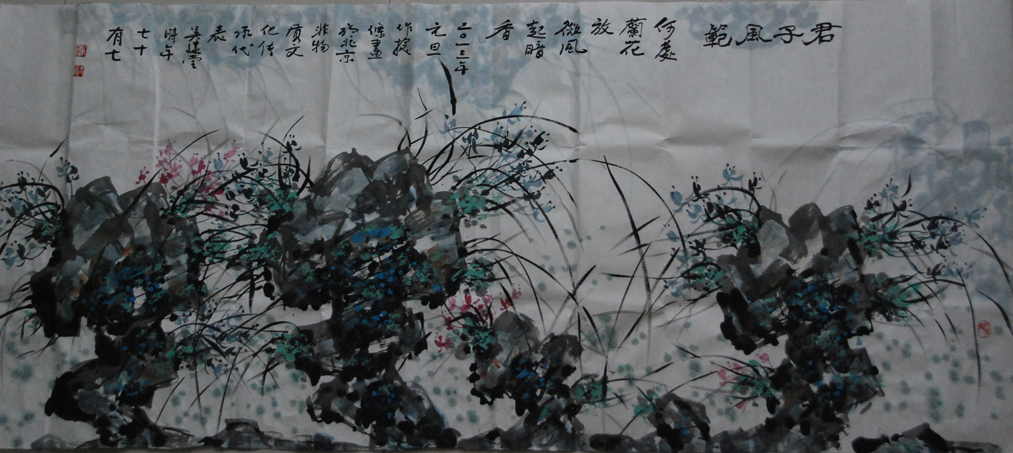 君子風範
何處
蘭花
放
微風
起暗
香
二〇一三年
元旦
於北京
非物
質文
化传
承代
表
時年
七十
有七